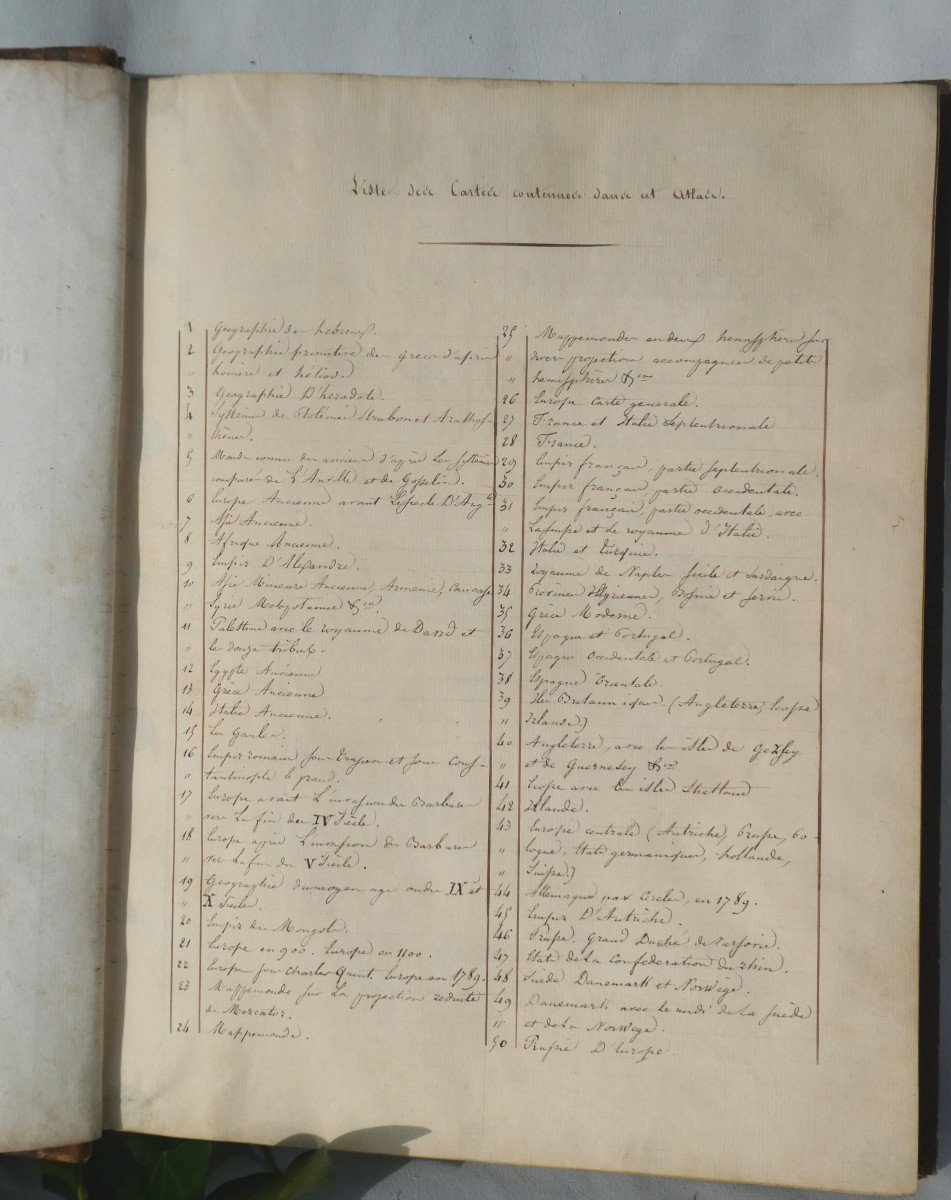 Liste des Cartes contenues dans cet Atlas.
1 Geographie des hebreux.
2 Geographie primitive des grecs d'après
" homere et hésiode
3 Geographie D'herodote.
4 Système de Ptolémée Strabon et Erathos-
" thènes.
5 Monde connu des anciens d'après les Systèmes
comparés de L'Anville et de Gosselin.
6 Europe Ancienne avant le siecle D'Aug.te
7 Asie Ancienne.
8 Afrique Ancienne.
9 Empire D'Alexandre.
10 Asie Mineure Ancienne, Armenie, Caucase
" Syrie Mesopotamie &ca.
11 Palestine avec le royaume de David et
" les douze tribus.
12 Egypte Ancienne
13 Grèce Ancienne
14 Italie Ancienne.
15 Les Gaules.
16 Empire romain sous Trajan et sous Cons-
" tantinople le grand.
17 Europe avant L'invasion des Barbares
" vers la fin du IV Siècle.
18 Europe après L'invasion des Barbares
" vers la fin du V Siècle.
19 Geographie du moyen age IX et
" X Siècles.
20 Empire des Mongols.
21 Europe en 900. Europe en 1100.
22 Europe sous Charles Quint. Europe en 1789.
23 Mappemonde sur La projection reduite
de Mercator.
24 Mappemonde.
25 Mappemondes en deux hemisphères sur
" projection accompagnées de petits
" hemisphères &ca
26 Europe Carte generale.
27 France et Italie Septentrionale
28 France.
29 Empire français, partie Septentrionale.
30 Empire français, partie Occidentale.
31 Empire français, partie occidentale, avec
" La Suisse et le royaume d'Italie.
32 Italie et Turquie.
33 royaume de Naples Sicile et Sardaigne.
34 Provinces Illyriennes, Bosnie et Servie.
35 Grèce Moderne.
36 Espagne et Portugal.
37 Espagne Occidentale et Portugal.
38 Espagne Orientale.
39 Iles Britanniques (Angleterre, Ecosse
" Irlande)
40 Angleterre, avec les isles de Gersey
" et de Guernesey &ca
41 Ecosse avec les isles Shetland
42 Irlande.
43 Europe centrale (Autriche, Prusse, Po-
" logne, Etats germaniques, hollande,
" Suisse)
44 Allemagne par Cercles, en 1789.
45 Empire D'Autriche.
46 Prusse, Grand Duché de Varsovie.
47 Etats de La Confederation du Rhin.
48 Suède Danemark et Norwege.
49 Danemark avec le midi de la Suède
" et de La Norwege.
50 Prusse D'Europe.